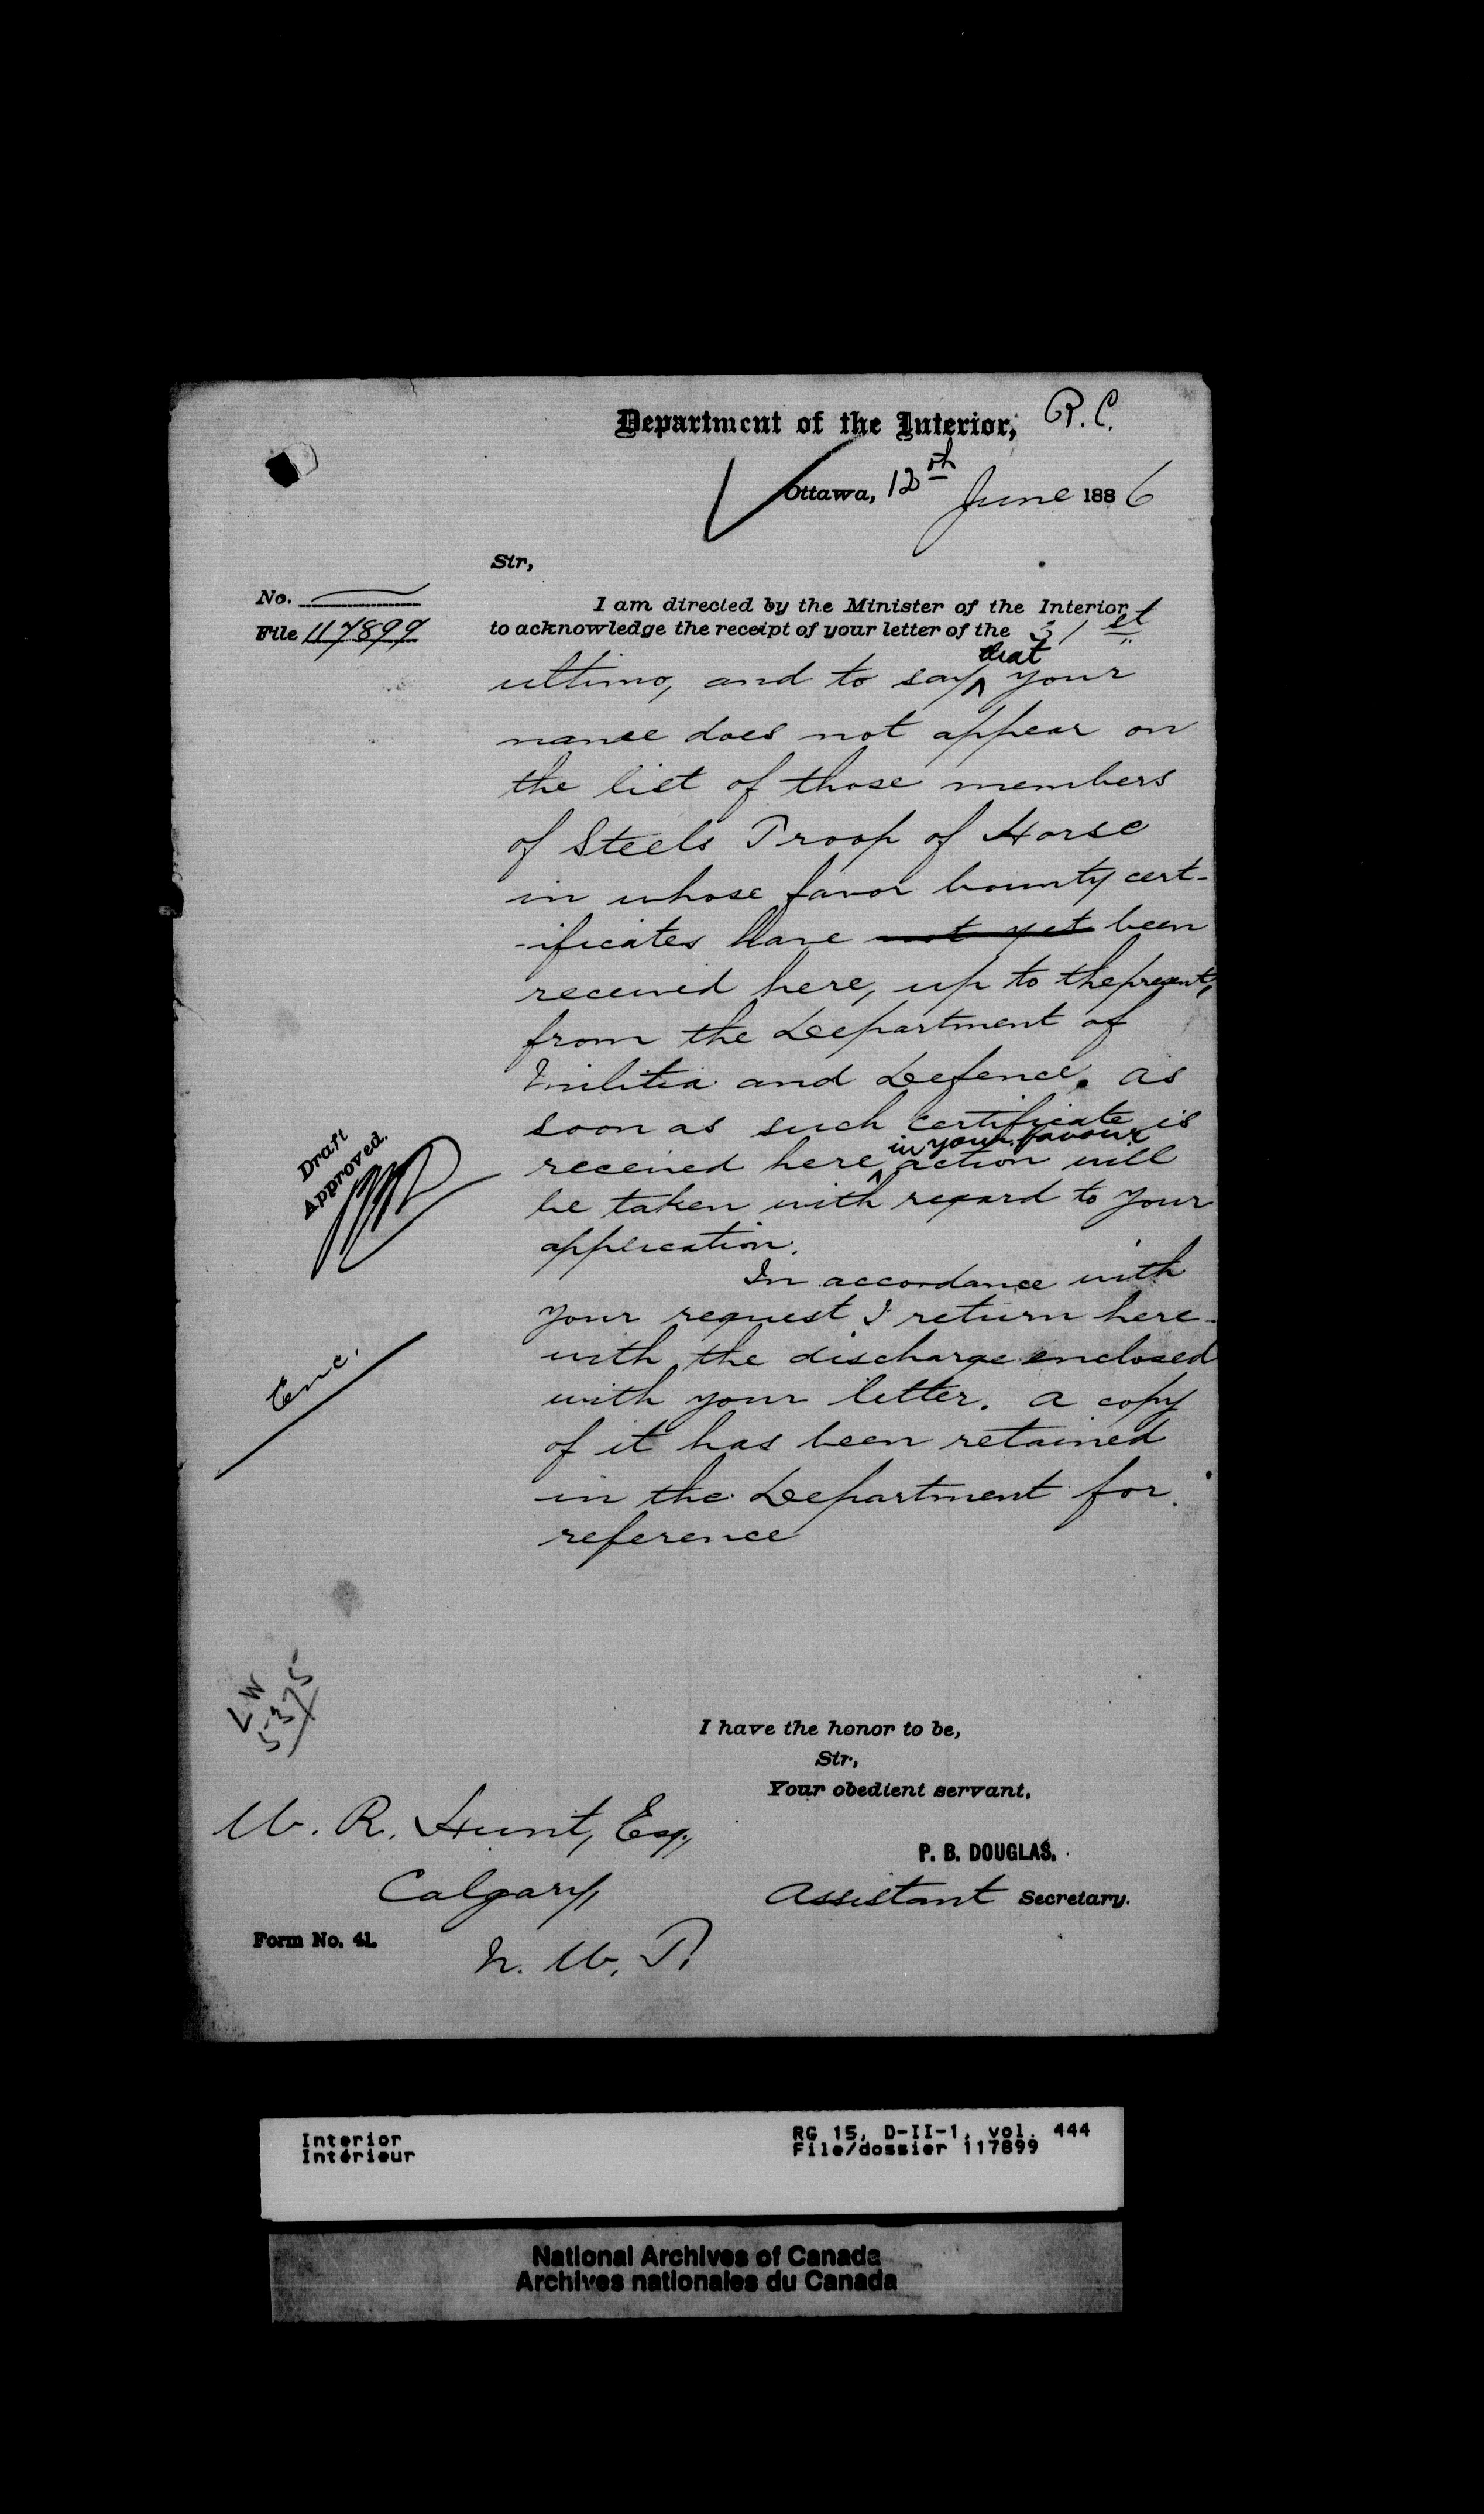 Department of the Interior, R.C.
Ottawa, 12th June 1886
Sir,
No.
File 117899
I am directed by the Minister of the Interior
to acknowledge the receipt of your letter of the 31st
that
ultimo, and to say ^ your
name does not appear on
the list of those members
of Steels Troop of Horse
in whose favor bounty cert-
-ificates have not yet been
received here, up to the present,
from the Department of
Militia and Defence. As
soon as such certificate is
in your favour
received here ^ action will
be taken with regard to your
application.
Draft
Approved.
In accordance with
your request I return here-
with the discharge enclosed
with your letter. A copy
of it has been retained
in the Department for
reference
Enc.
LW
5375
I have the honor to be,
Sir,
Your obedient servant,
P. B. DOUGLAS.
Assistant Secretary.
W. R. Hunt, Esq,
Calgary,
N. W. T.
Form No. 41.
Interior
Intérieur
RG 15, D-II-1, vol. 444
File/dossier 117899
National Archives of Canada
Archives nationales du Canada